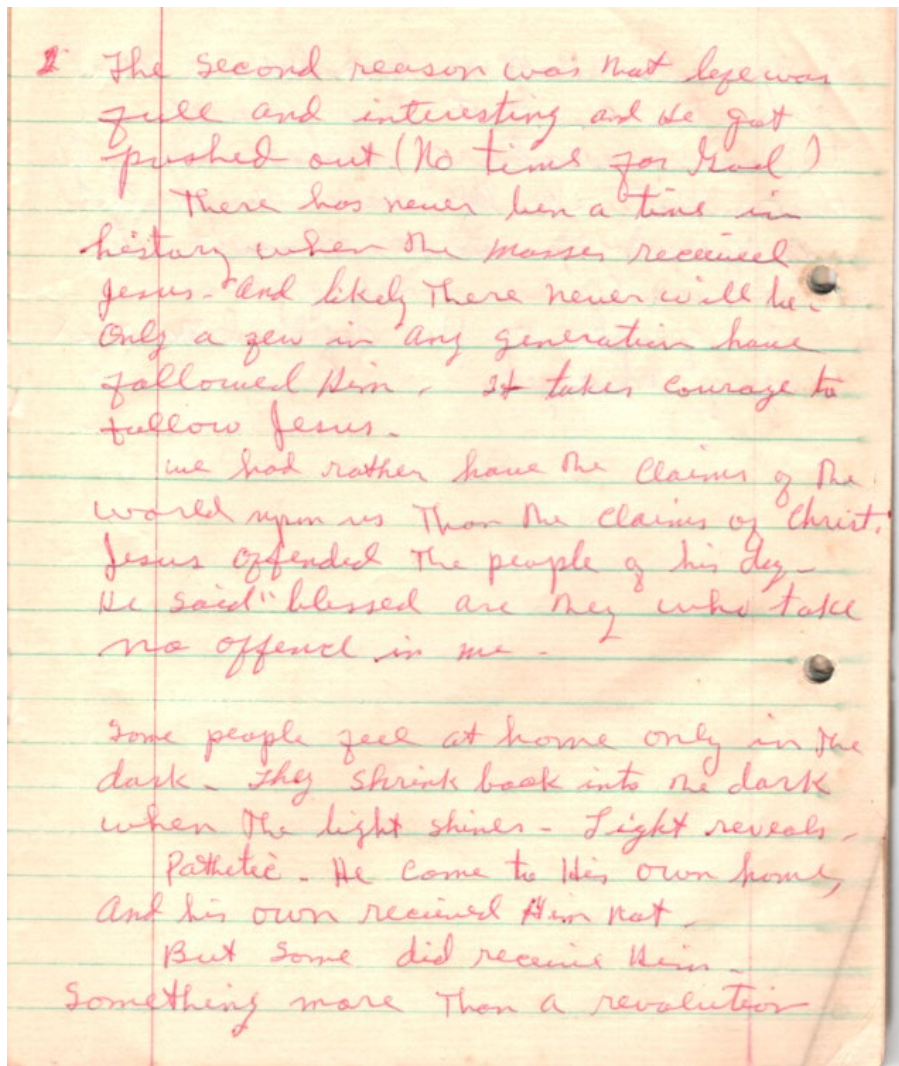 2 The second reason was that life was
full and interesting and He got
pushed out (No time for God)
There has never ben a time in
history when the masses received
Jesus - and likely There never will be.
Only a few in any generation have
followed Him. It takes courage to
follow Jesus.
we had rather have the claims of the
world upon us Than the claims of Christ.
Jesus offended The people of his day -
He said "blessed are they who take
no offend in me -
Some people feel at home only in the
dark - They shrink back into the dark
when the light shines - Light reveals.
Pathetic - He come to His own home,
And his own received Him not.
But some did receive Him -
Something more Than a revolution